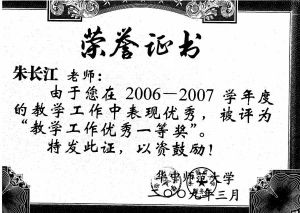 荣誉证书
朱长江 老师：
由于您在 2006－2007 学年度
的教学工作中表现优秀，被评为
“教学工作优秀一等奖”。
特发此证，以资鼓励！
华中师范大学
二〇〇九年三月